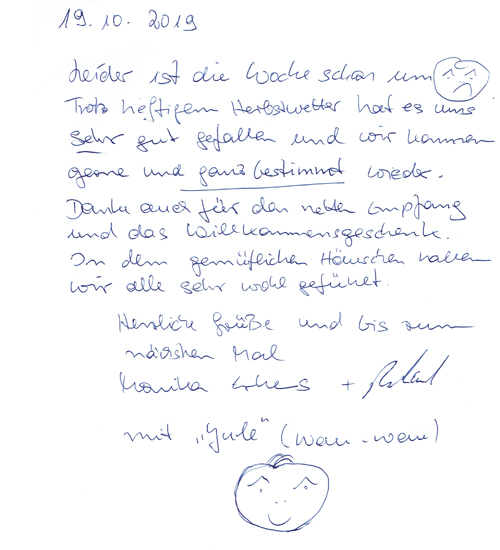 19.10.2019
Leider ist die Woche schon um
Trotz heftigem Herbstwetter hat es uns
sehr gut gefallen und wir kommen
gerne und ganz bestimmt wieder.
Danke auch für den netten Empfang
und das Willkommensgeschenk.
In dem gemütlichen Häuschen haben
wir alle sehr wohl gefühlt.
Herzliche Grüße und bis zum
nächsten Mal
Monika + 
mit „Jule“ (wau-wau)